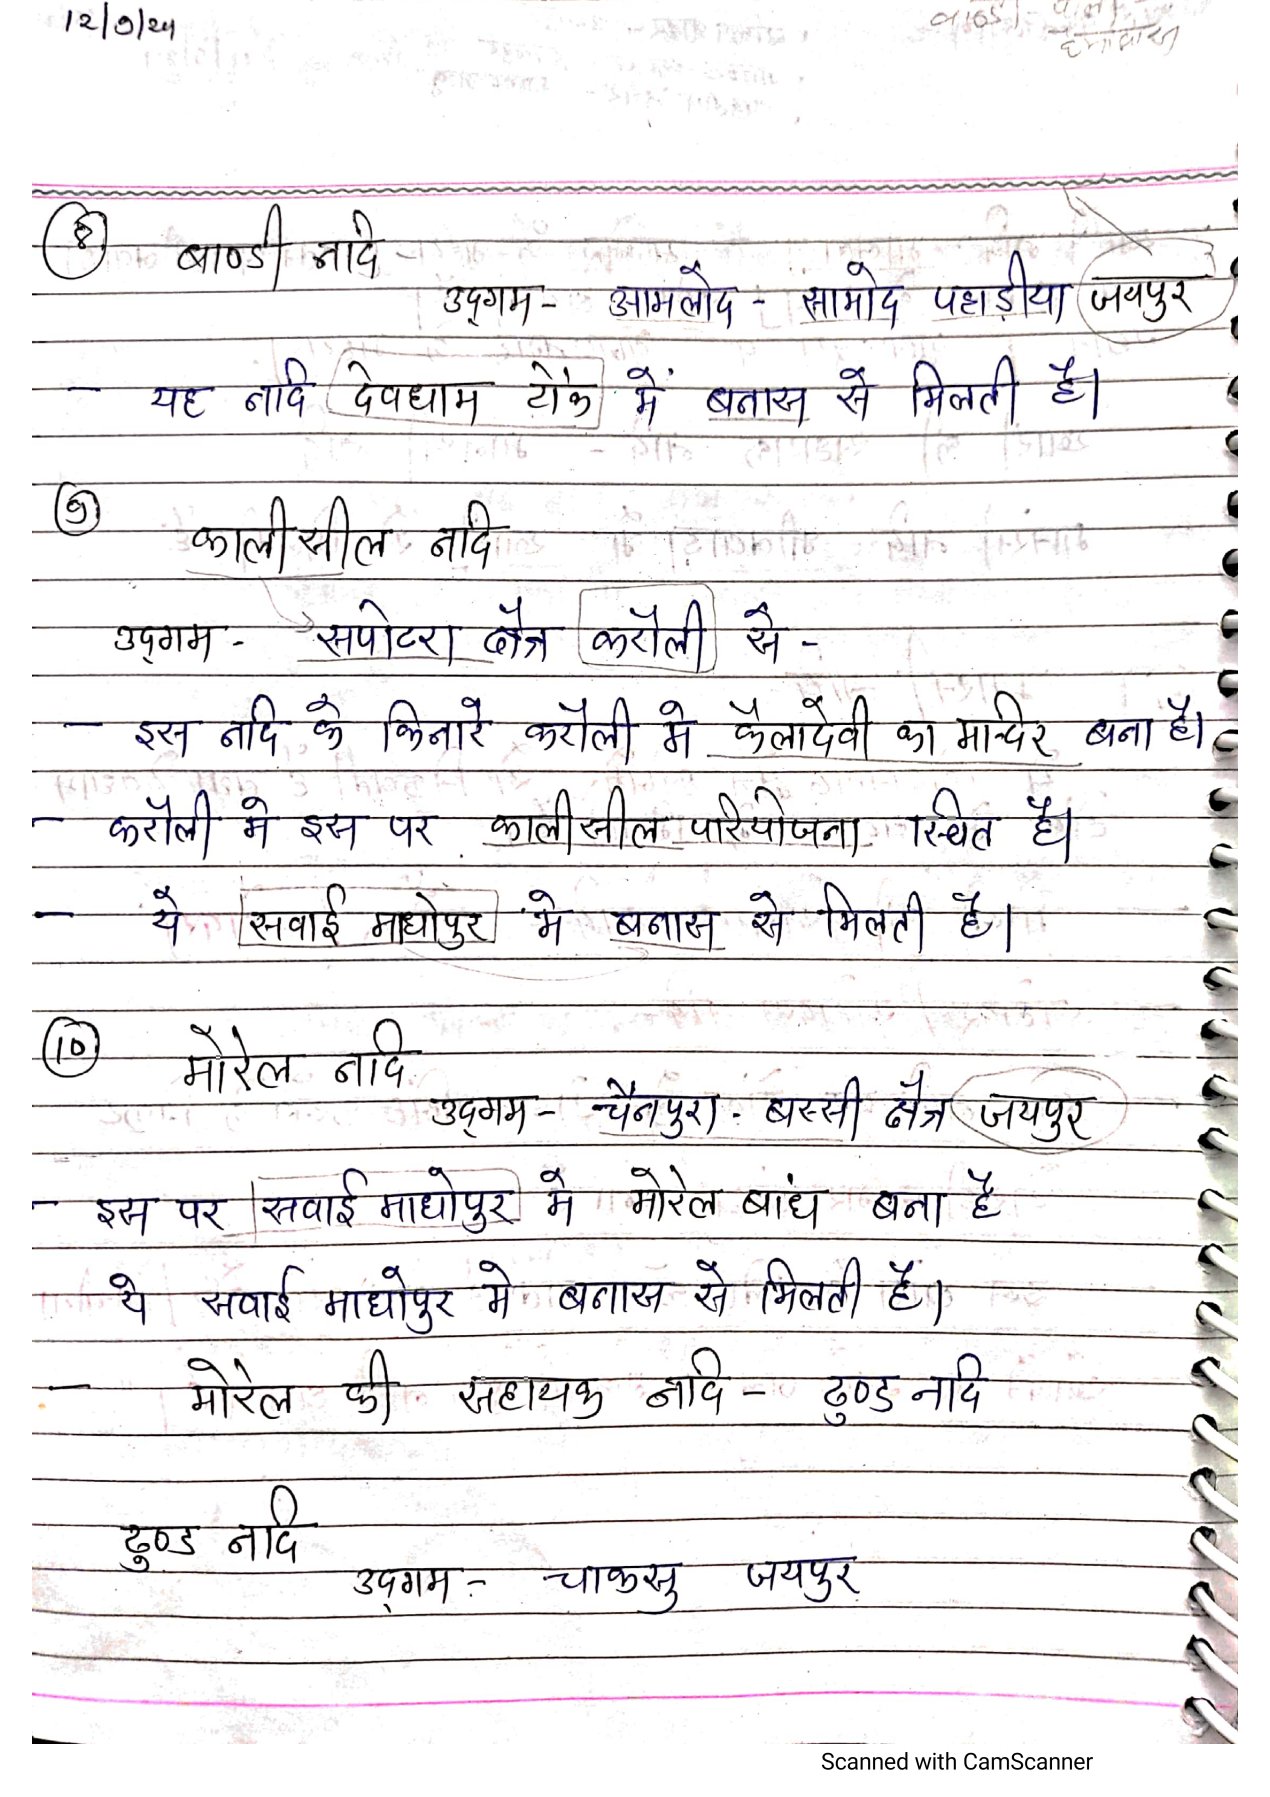 12/9/24
बाण्डी -
⑧ बाण्डी नदि -
उद्‌गम - आमलोद - सामोद पहाड़ीया जयपुर
- यह नदि देवधाम टोंक में बनास से मिलती है।
⑨
कालीसील नदि
उद्‌गम - सपोटरा क्षैत्र करौली से -
- इस नदि के किनारे करौली मे कैलादेवी का मान्दिर बना है।
- करौली मे इस पर कालीसील परियोजना स्थित है।
- ये सवाई माधोपुर मे बनास से मिलती है।
⑩ मोरेल नदि
उद्‌गम - चैनपुरा - बस्सी क्षैत्र जयपुर
- इस पर सवाई माधोपुर मे मोरेल बांध बना है
ये सवाई माधोपुर मे बनास से मिलती है।
- मोरेल की सहायक नदि - ढुण्ड नदि
ढुण्ड नदि
उद्‌गम - चाकसु जयपुर
Scanned with CamScanner